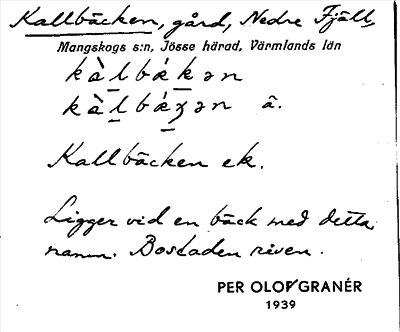 Kallbäcken, gård, Nedre Fjäll,
Mangskogs s:n, Jösse härad, Värmlands län
kàlbákən
kàlbáʒən ä.
Kallbäcken ek.
Ligger vid en bäck med detta
namn. Bostaden riven.
PER OLOF GRANÉR
1939